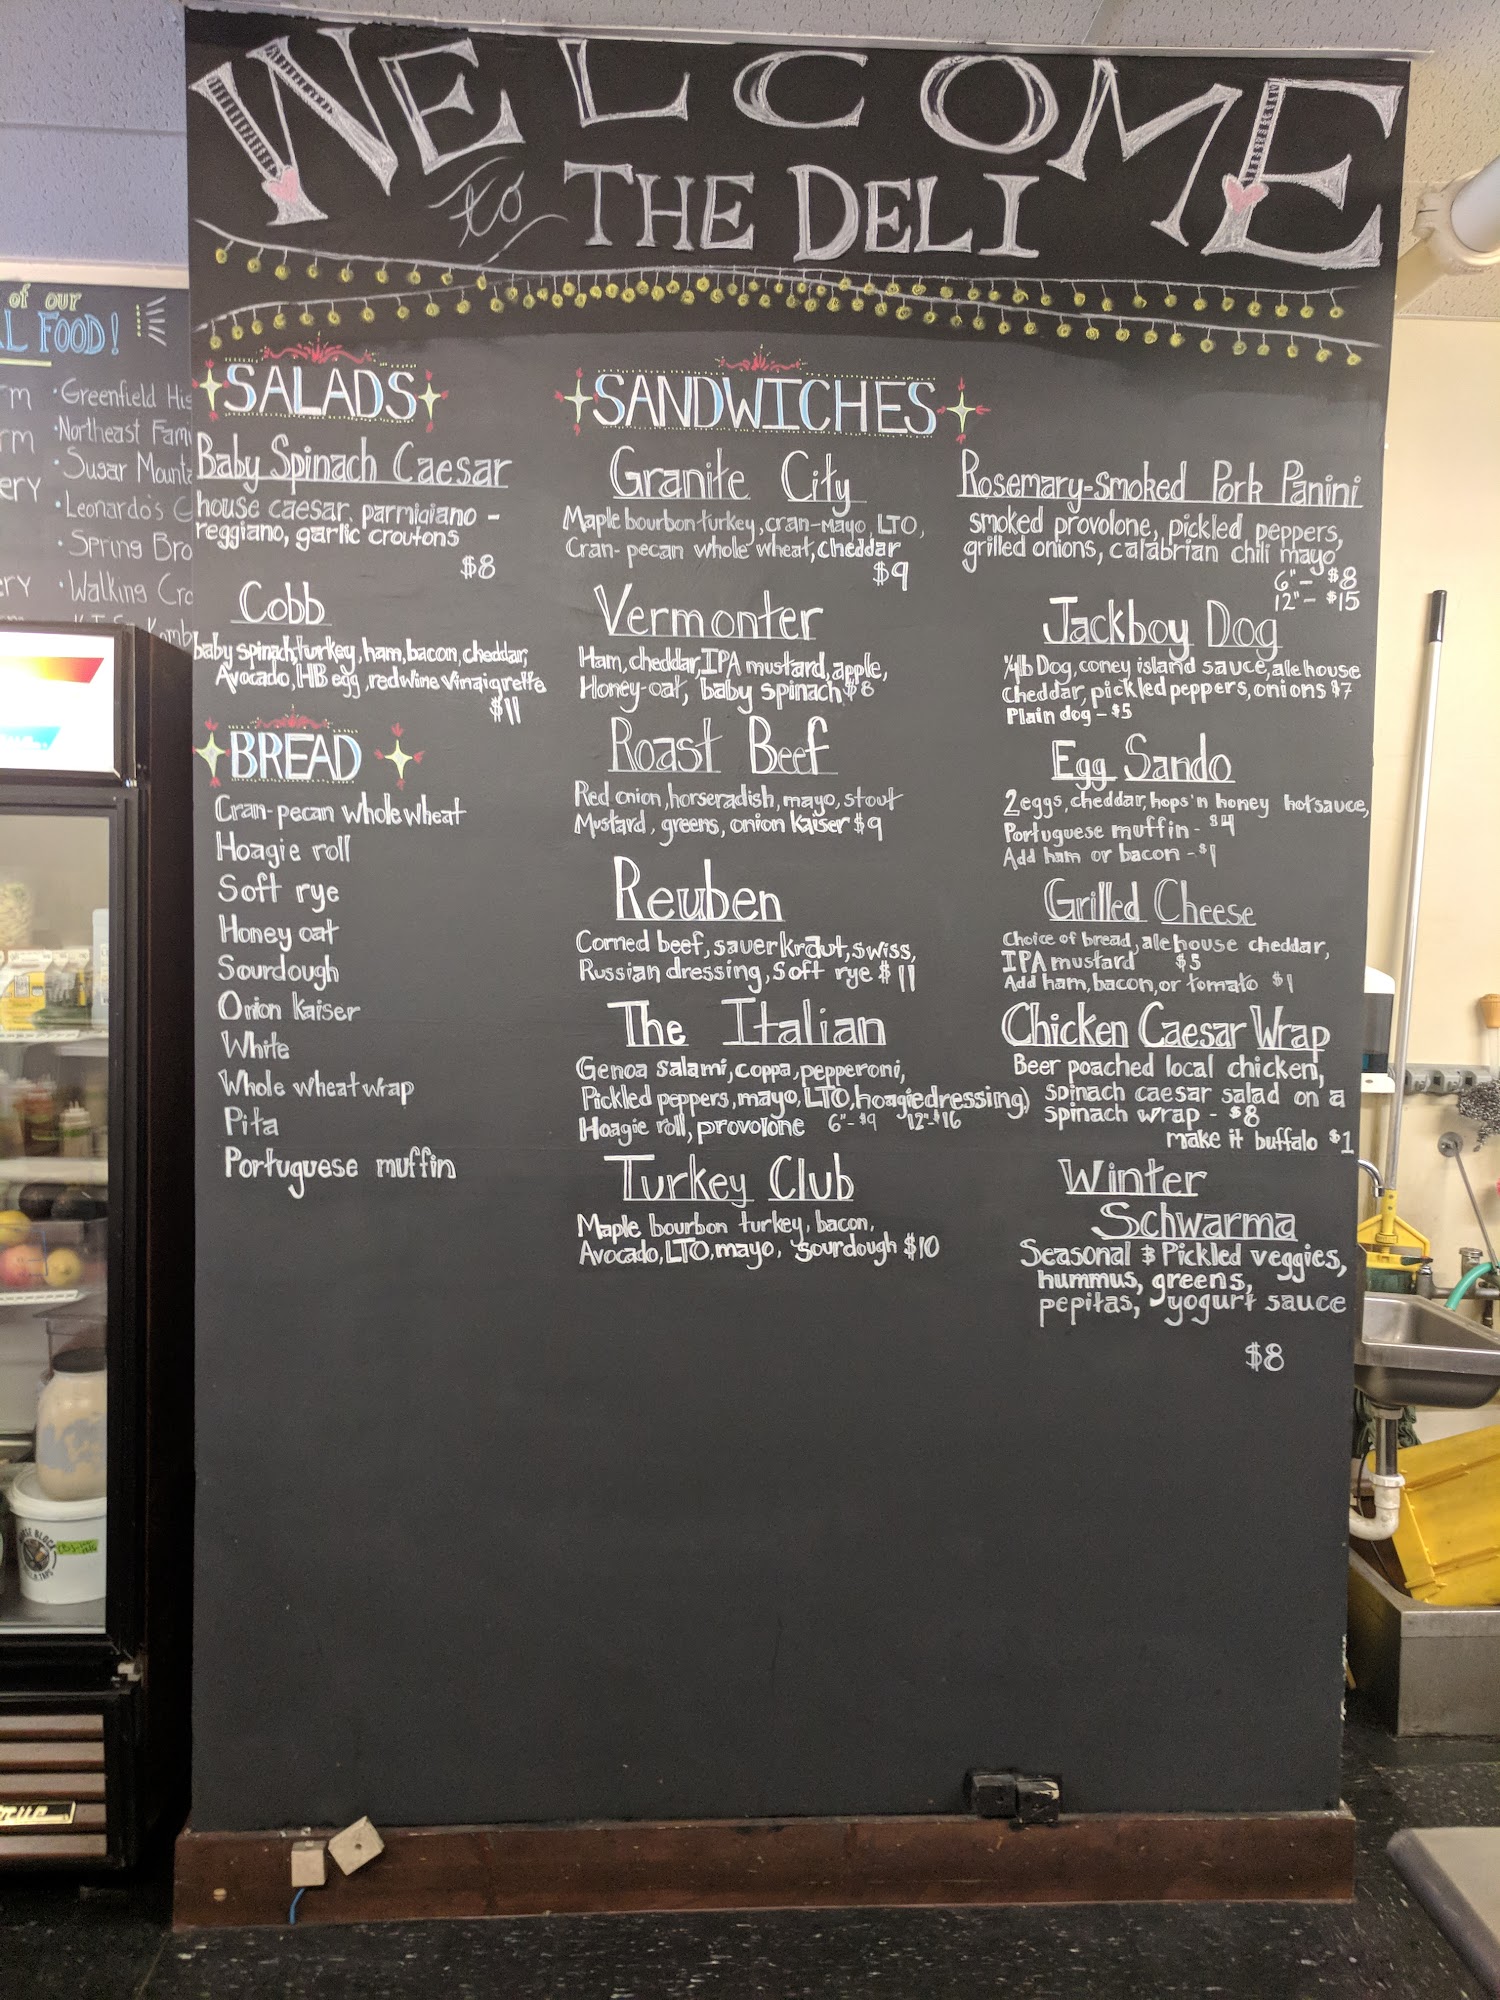 WELCOME
to THE DELI
of our
L FOOD!
rm
• Greenfield His
rm
• Northeast Fam
• Sugar Mount
ery
• Leonardo's C
• Spring Bro
ry
• Walking Cro
SALADS
Baby Spinach Caesar
house caesar, parmigiano -
reggiano, garlic croutons
$8
Cobb
baby spinach, turkey, ham, bacon, cheddar,
Avocado, HB egg, red wine vinaigrette
$11
BREAD
Cran-pecan whole wheat
Hoagie roll
Soft rye
Honey oat
Sourdough
Onion kaiser
White
Whole wheat wrap
Pita
Portuguese muffin
SANDWICHES
Granite City
Maple bourbon turkey, cran-mayo, LTO,
Cran-pecan whole wheat, cheddar
$9
Vermonter
Ham, cheddar, IPA mustard, apple,
Honey-oat, baby spinach $8
Roast Beef
Red onion, horseradish, mayo, stout
Mustard, greens, onion kaiser $9
Reuben
Corned beef, sauerkraut, swiss,
Russian dressing, Soft rye $11
The Italian
Genoa salami, coppa, pepperoni,
Pickled peppers, mayo, LTO, hoagie dressing,
Hoagie roll, provolone 6"-$9 12"-$16
Turkey Club
Maple bourbon turkey, bacon,
Avocado, LTO, mayo, sourdough $10
Rosemary-Smoked Pork Panini
smoked provolone, pickled peppers,
grilled onions, calabrian chili mayo
6" - $8
12" - $15
Jackboy Dog
1/4 lb Dog, coney island sauce, ale house
cheddar, pickled peppers, onions $7
Plain dog - $5
Egg Sando
2 eggs, cheddar, hops 'n honey hot sauce,
Portuguese muffin - $4
Add ham or bacon - $1
Grilled Cheese
Choice of bread, ale house cheddar,
IPA mustard $5
Add ham, bacon, or tomato $1
Chicken Caesar Wrap
Beer poached local chicken,
spinach caesar salad on a
spinach wrap - $8
make it buffalo $1
Winter
Schwarma
Seasonal & Pickled veggies,
hummus, greens,
pepitas, yogurt sauce
$8